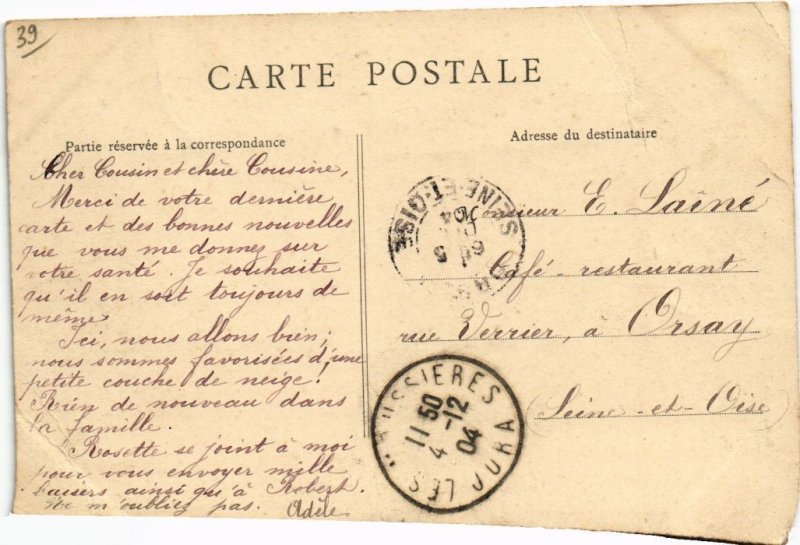 39
CARTE POSTALE
Partie réservée à la correspondance
Adresse du destinataire
Cher Cousin et chère Cousine,
Merci de votre dernière
carte et des bonnes nouvelles
que vous me donnez sur
votre santé. Je souhaite
qu'il en soit toujours de
même
Ici, nous allons bien;
nous sommes favorisées d'une
petite couche de neige!
Rien de nouveau dans
la famille.
Rosette se joint à moi
pour vous envoyer mille
baisers ainsi qu'à Robert.
ne m'oubliez pas. Adèle
Monsieur E. Lainé
Café-restaurant
rue Verrier, à Orsay
(Seine-et-Oise)
SEINE-ET-OISE
04
LES BUSSIERES
11 50
4 -12
04
JURA